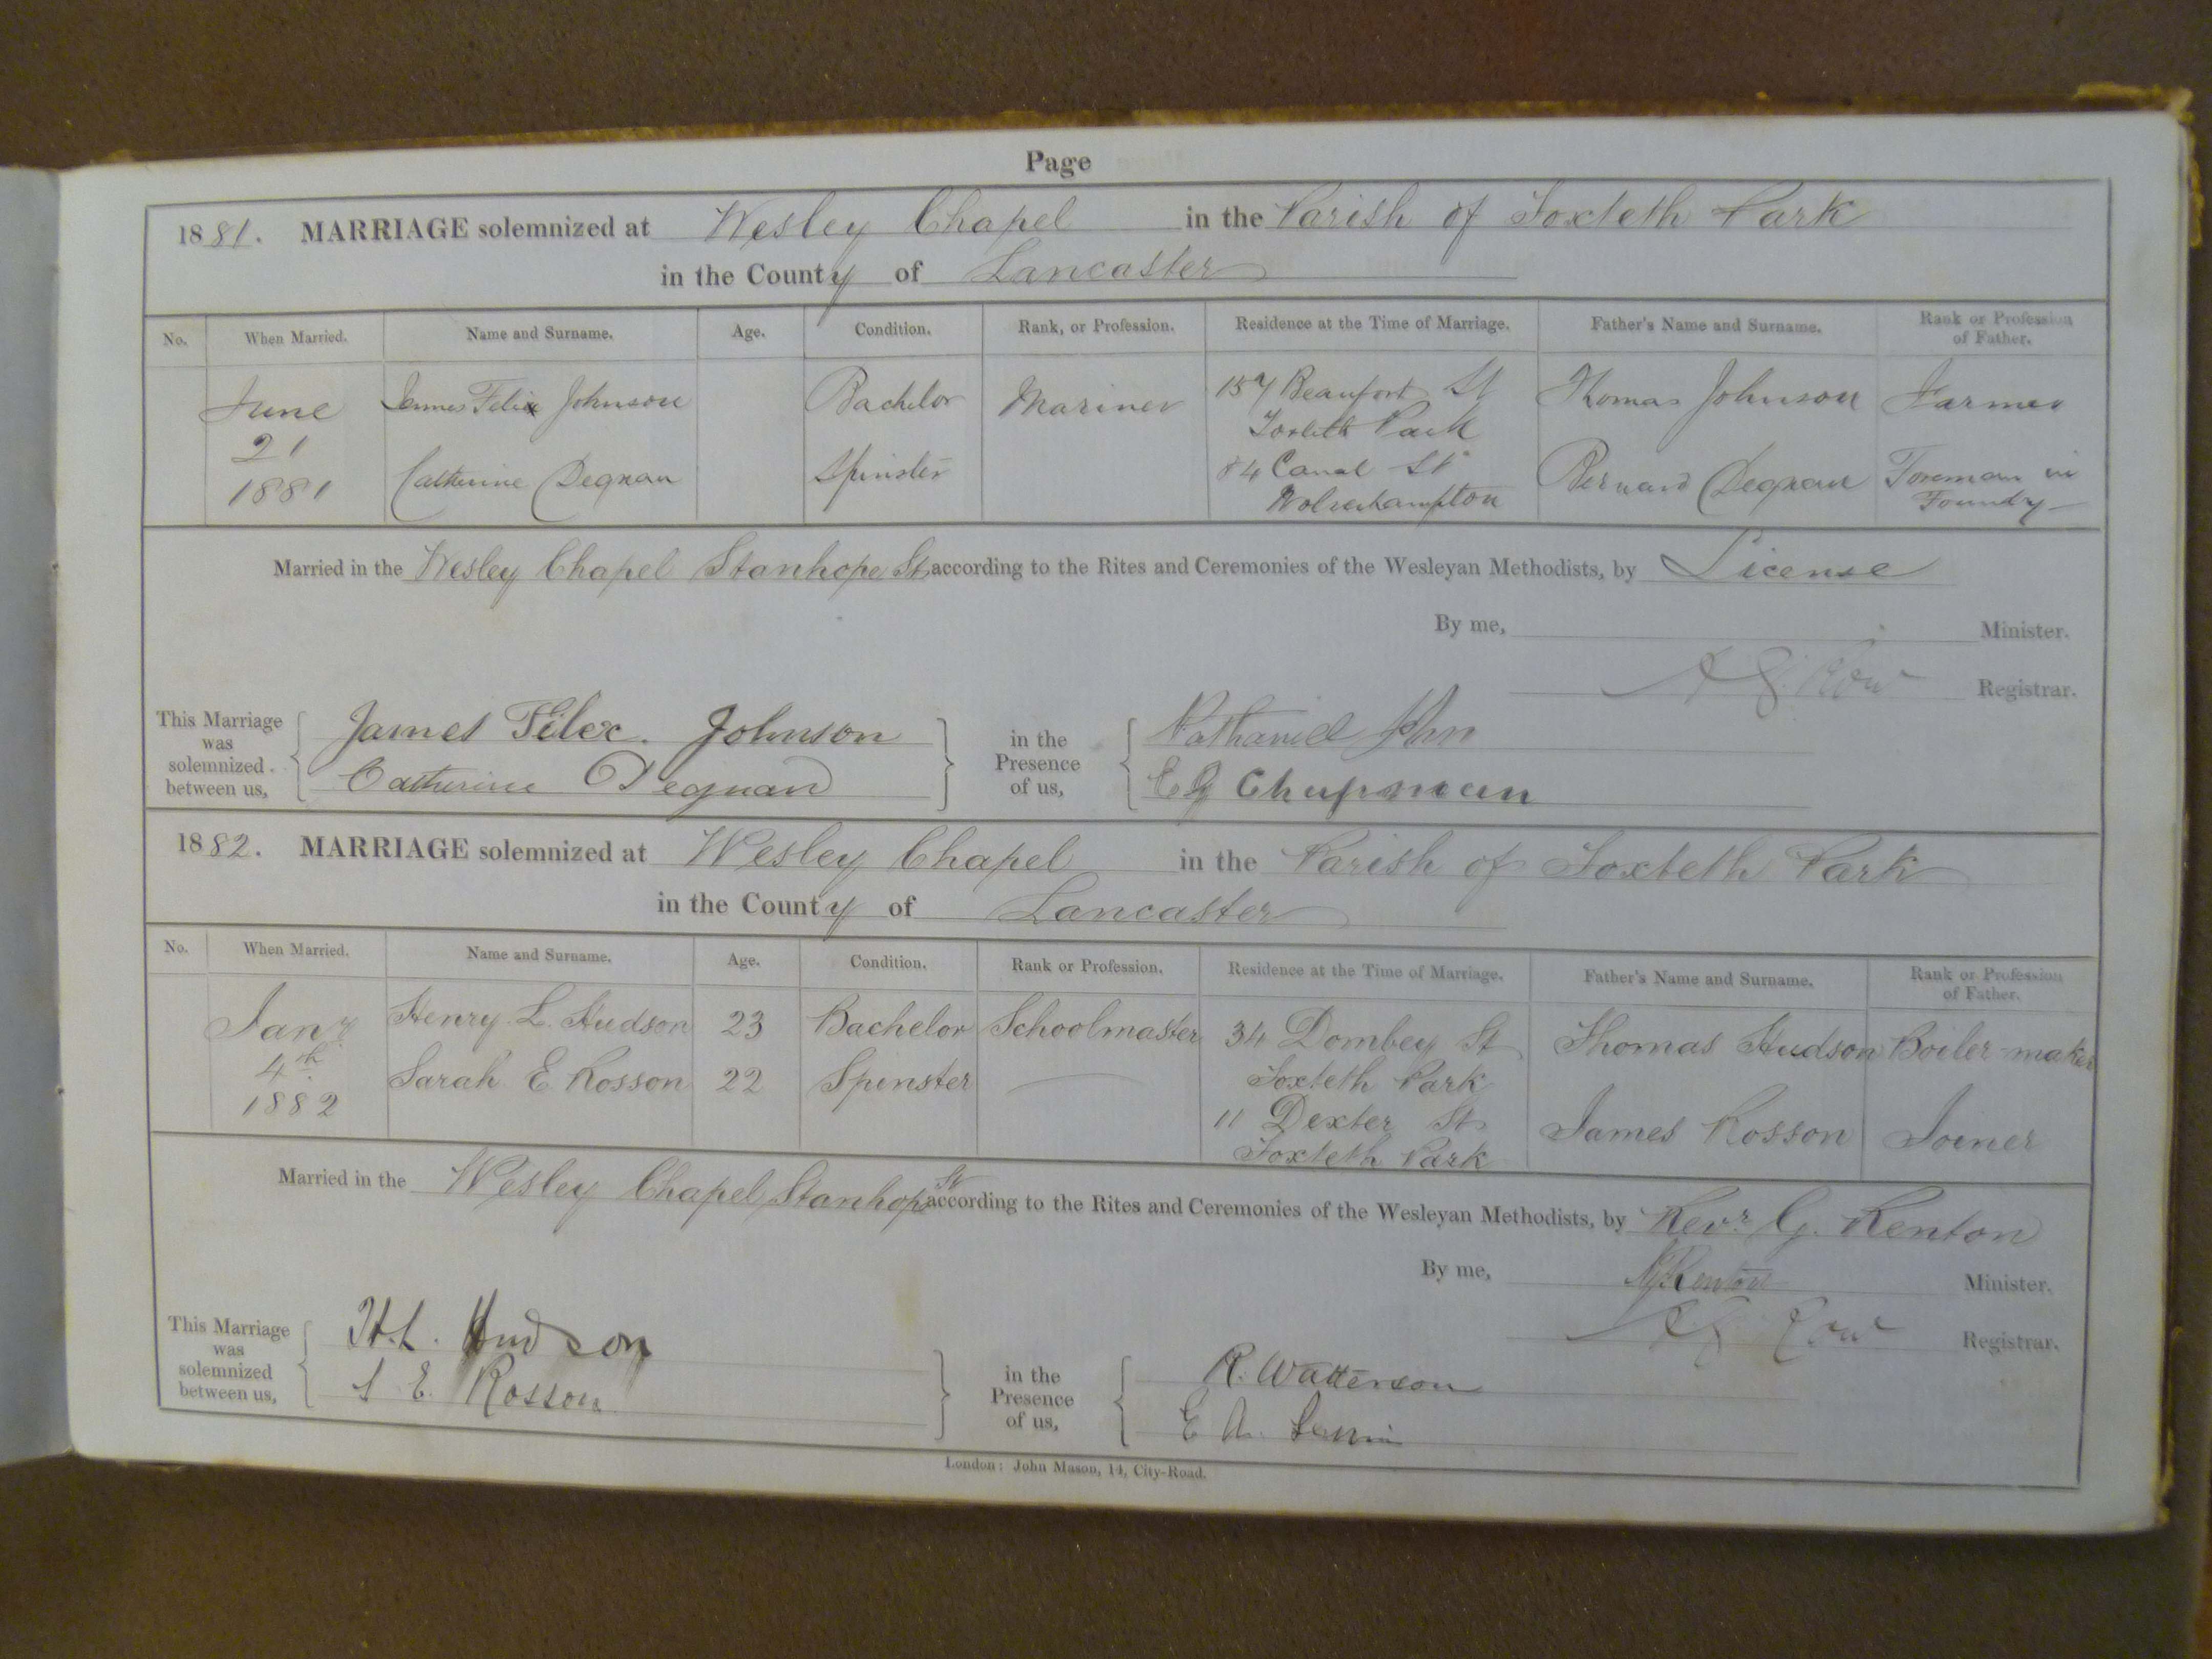 Page
1881. MARRIAGE solemnized at Wesley Chapel in the Parish of Toxteth Park
in the County of Lancaster
No. When Married. Name and Surname. Age. Condition. Rank, or Profession. Residence at the Time of Marriage. Father's Name and Surname. Rank or Profession of Father.
June James Felix Johnson Bachelor Mariner 157 Beaufort St Thomas Johnson Farmer
21 Toxteth Park
1881 Catherine Degnan Spinster 84 Canal St Bernard Degnan Foreman in
Wolverhampton Foundry
Married in the Wesley Chapel Stanhope St according to the Rites and Ceremonies of the Wesleyan Methodists, by License
By me, Minister.
Registrar.
This Marriage was solemnized between us, James Felex. Johnson in the Presence of us, Nathaniel
Catherine Degnan Chapman
1882. MARRIAGE solemnized at Wesley Chapel in the Parish of Toxteth Park
in the County of Lancaster
No. When Married. Name and Surname. Age. Condition. Rank or Profession. Residence at the Time of Marriage. Father's Name and Surname. Rank or Profession of Father.
Janr Henry L. Hudson 23 Bachelor Schoolmaster 34 Dombey St Thomas Hudson Boiler-maker
4th Sarah E Rosson 22 Spinster Toxteth Park
1882 11 Dexter St James Rosson Joiner
Toxteth Park
Married in the Wesley Chapel Stanhope St according to the Rites and Ceremonies of the Wesleyan Methodists, by Revr G. Kenton
By me, Kenton Minister.
Registrar.
This Marriage was solemnized between us, H.L. Hudson in the Presence of us, R. Watterson
S E. Rosson E A.
London: John Mason, 14, City-Road.